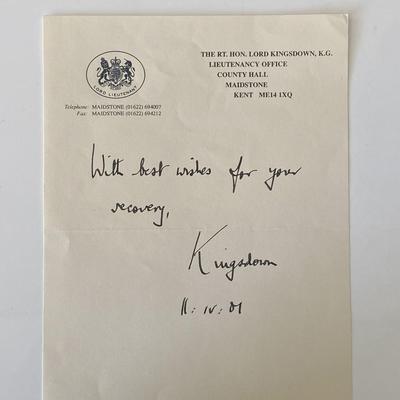 THE RT. HON. LORD KINGSDOWN, K.G.
LIEUTENANCY OFFICE
COUNTY HALL
MAIDSTONE
KENT ME14 1XQ
LORD LIEUTENANT
Telephone: MAIDSTONE (01622) 694007
Fax: MAIDSTONE (01622) 694212
With best wishes for your
recovery,
Kingsdown
11: iv: 01